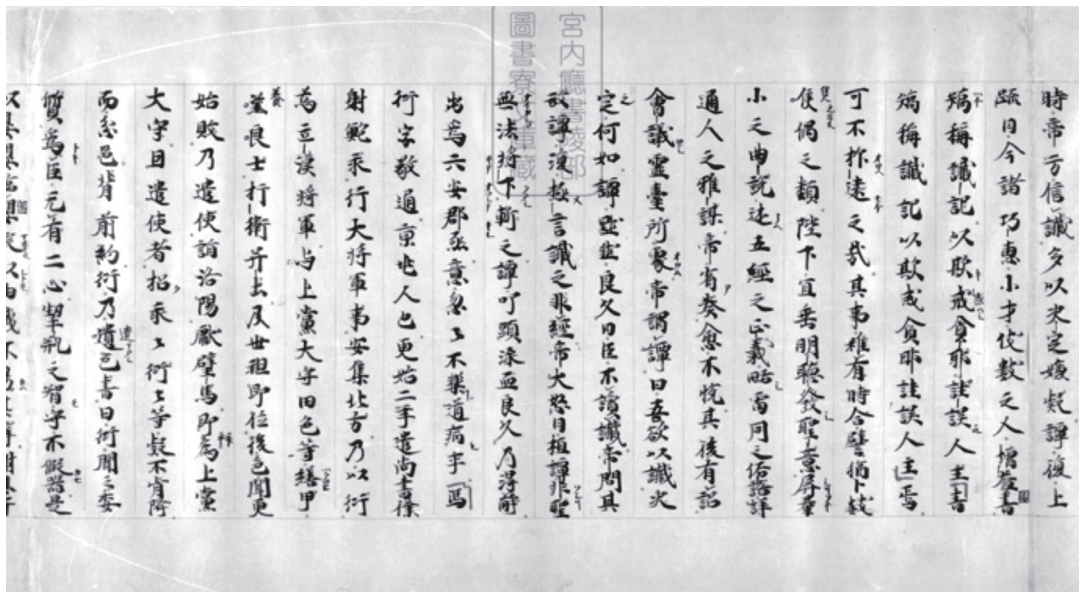 時帝方信讖多以決定嫌疑譚復上
疏曰今諸巧惠小才伎數之人增益圖書
矯稱讖記以欺惑貪邪詿誤人主
矯稱讖記以欺或貪耶詿誤人主焉
可不抑遠之哉其事雖有時合譬猶卜數
隻偶之類陛下宜垂明聽發聖意屏群
小之曲說述五經之正義略雷同之俗語詳
通人之雅謀帝省奏愈不悅其後有詔
會議靈臺所處帝謂譚曰吾欲以讖決
之何如譚默然良久曰臣不讀讖帝問其
故譚復極言讖之非經帝大怒曰桓譚非聖
無法將下斬之譚叩頭流血良久乃得解
出為六安郡丞意忽々不樂道病卒
衍字敬通京兆人也更始二年遣尚書僕
射鮑永行大將軍事安集北方乃以衍
為立漢將軍与上黨大守田邑等繕甲
養士扞衛并土及世祖即位後邑聞更
始敗乃遣使詣洛陽獻璧馬即為上黨
大守因遣使者招永々衍々等疑不肯降
而忿邑背前約衍乃遺邑書曰衍聞之委
質為臣無有二心挈瓶之智守不假器是
圖書寮
宮内廳書陵部